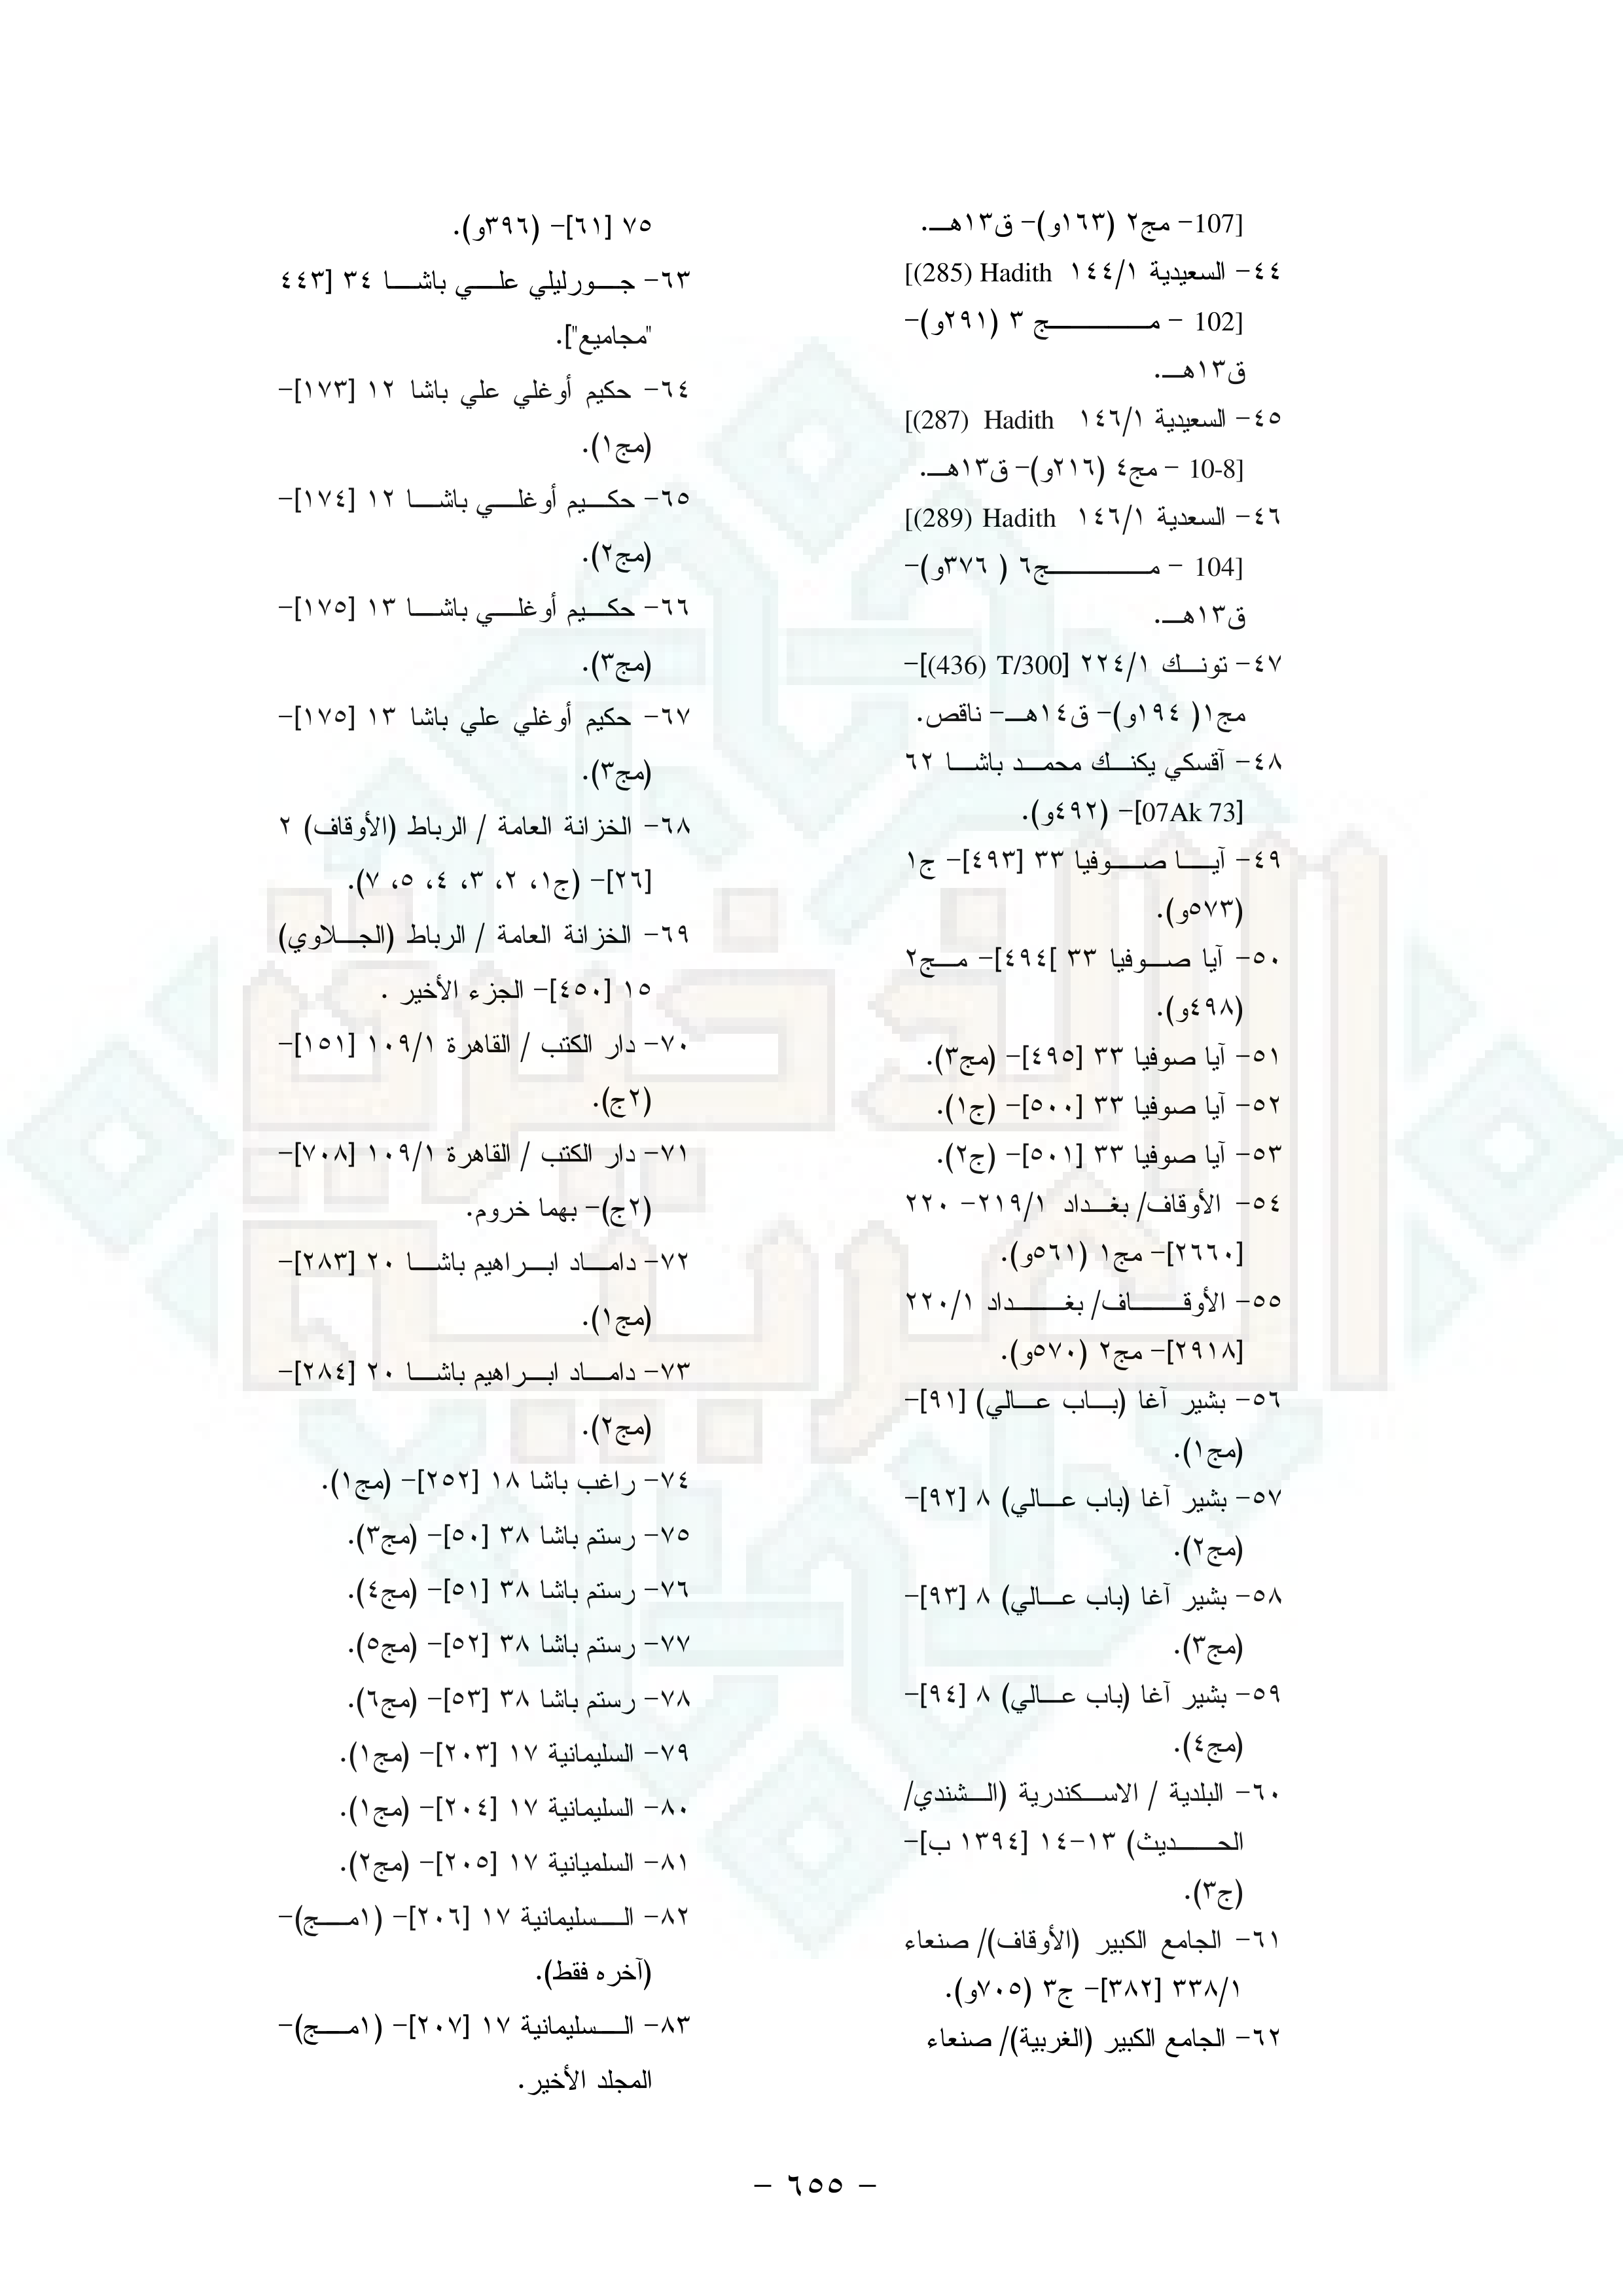 [107- مج٢ (١٦٣و)- ق١٣هـ.
٤٤- السعيدية ١/١٤٤ Hadith (285)]
[102 - مج ٣ (٢٩١و)-
ق١٣هـ.
٤٥- السعيدية ١/١٤٦ Hadith (287)]
[10-8 - مج٤ (٢١٦و)- ق١٣هـ.
٤٦- السعدية ١/١٤٦ Hadith (289)]
[104 - مج٦ ( ٣٧٦و)-
ق١٣هـ.
٤٧- تونك ١/٢٢٤ [T/300 (436)]-
مج١( ١٩٤و)- ق١٤هـ- ناقص.
٤٨- آقسكي يكنك محمد باشا ٦٢
[07Ak 73]- (٤٩٢و).
٤٩- آيا صوفيا ٣٣ [٤٩٣]- ج١
(٥٧٣و).
٥٠- آيا صوفيا ٣٣ ]٤٩٤]- مج٢
(٤٩٨و).
٥١- آيا صوفيا ٣٣ [٤٩٥]- (مج٣).
٥٢- آيا صوفيا ٣٣ [٥٠٠]- (ج١).
٥٣- آيا صوفيا ٣٣ [٥٠١]- (ج٢).
٥٤- الأوقاف/ بغداد ١/٢١٩- ٢٢٠
[٢٦٦٠]- مج١ (٥٦١و).
٥٥- الأوقاف/ بغداد ١/٢٢٠
[٢٩١٨]- مج٢ (٥٧٠و).
٥٦- بشير آغا (باب عالي) [٩١]-
(مج١).
٥٧- بشير آغا (باب عالي) ٨ [٩٢]-
(مج٢).
٥٨- بشير آغا (باب عالي) ٨ [٩٣]-
(مج٣).
٥٩- بشير آغا (باب عالي) ٨ [٩٤]-
(مج٤).
٦٠- البلدية / الاسكندرية (الشندي/
الحديث) ١٣-١٤ [١٣٩٤ ب]-
(ج٣).
٦١- الجامع الكبير (الأوقاف)/ صنعاء
١/٣٣٨ [٣٨٢]- ج٣ (٧٠٥و).
٦٢- الجامع الكبير (الغربية)/ صنعاء
٧٥ [٦١]- (٣٩٦و).
٦٣- جورليلي علي باشا ٣٤ [٤٤٣
"مجاميع"].
٦٤- حكيم أوغلي علي باشا ١٢ [١٧٣]-
(مج١).
٦٥- حكيم أوغلي باشا ١٢ [١٧٤]-
(مج٢).
٦٦- حكيم أوغلي باشا ١٣ [١٧٥]-
(مج٣).
٦٧- حكيم أوغلي علي باشا ١٣ [١٧٥]-
(مج٣).
٦٨- الخزانة العامة / الرباط (الأوقاف) ٢
[٢٦]- (ج١، ٢، ٣، ٤، ٥، ٧).
٦٩- الخزانة العامة / الرباط (الجلاوي)
١٥ [٤٥٠]- الجزء الأخير .
٧٠- دار الكتب / القاهرة ١/١٠٩ [١٥١]-
(٢ج).
٧١- دار الكتب / القاهرة ١/١٠٩ [٧٠٨]-
(٢ج)- بهما خروم.
٧٢- داماد ابراهيم باشا ٢٠ [٢٨٣]-
(مج١).
٧٣- داماد ابراهيم باشا ٢٠ [٢٨٤]-
(مج٢).
٧٤- راغب باشا ١٨ [٢٥٢]- (مج١).
٧٥- رستم باشا ٣٨ [٥٠]- (مج٣).
٧٦- رستم باشا ٣٨ [٥١]- (مج٤).
٧٧- رستم باشا ٣٨ [٥٢]- (مج٥).
٧٨- رستم باشا ٣٨ [٥٣]- (مج٦).
٧٩- السليمانية ١٧ [٢٠٣]- (مج١).
٨٠- السليمانية ١٧ [٢٠٤]- (مج١).
٨١- السلميانية ١٧ [٢٠٥]- (مج٢).
٨٢- السليمانية ١٧ [٢٠٦]- (١مج)-
(آخره فقط).
٨٣- السليمانية ١٧ [٢٠٧]- (١مج)-
المجلد الأخير.
- ٦٥٥ -